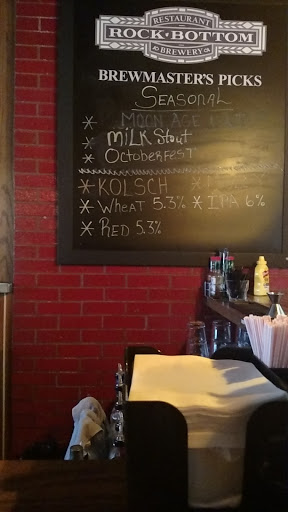 RESTAURANT
ROCK•BOTTOM
BREWERY
BREWMASTER'S PICKS
SEASONAL
* MOON AGE
* MILK Stout
* OctoberFEST
* KOLSCH *
* WHEAT 5.3% * IPA 6%
* RED 5.3%